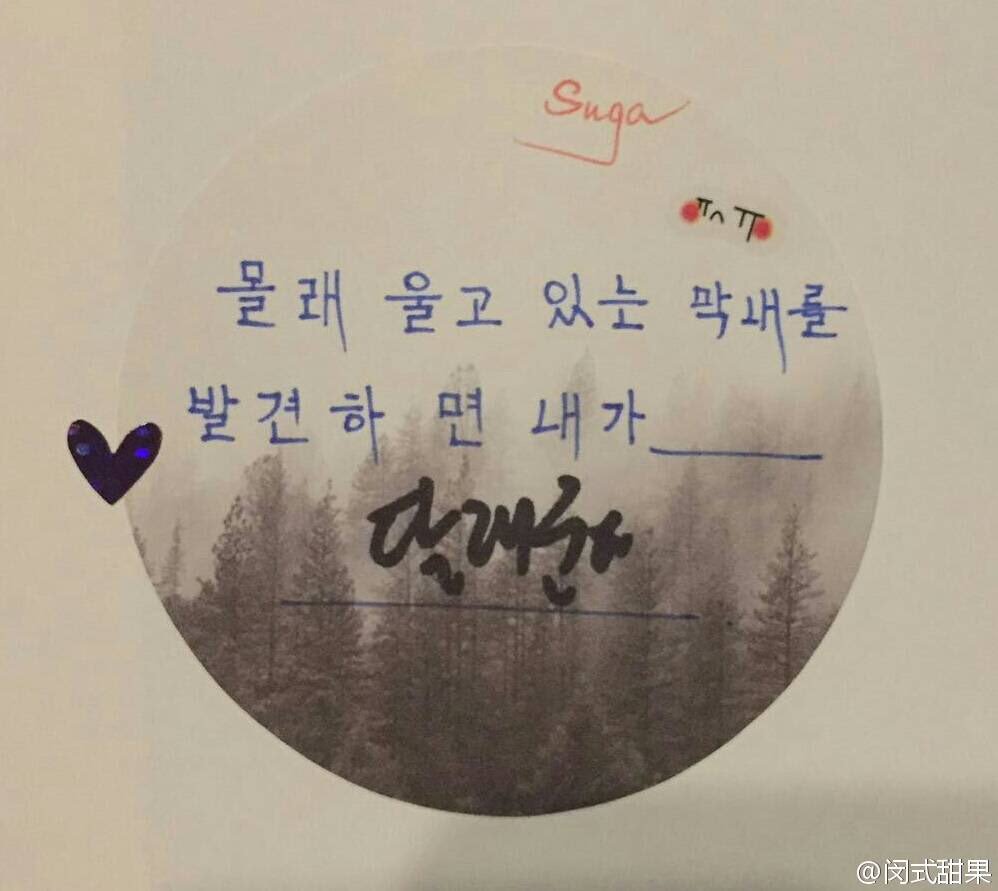 Suga
몰래 울고 있는 막내를
발견하면 내가
달래준다
@闵式甜果